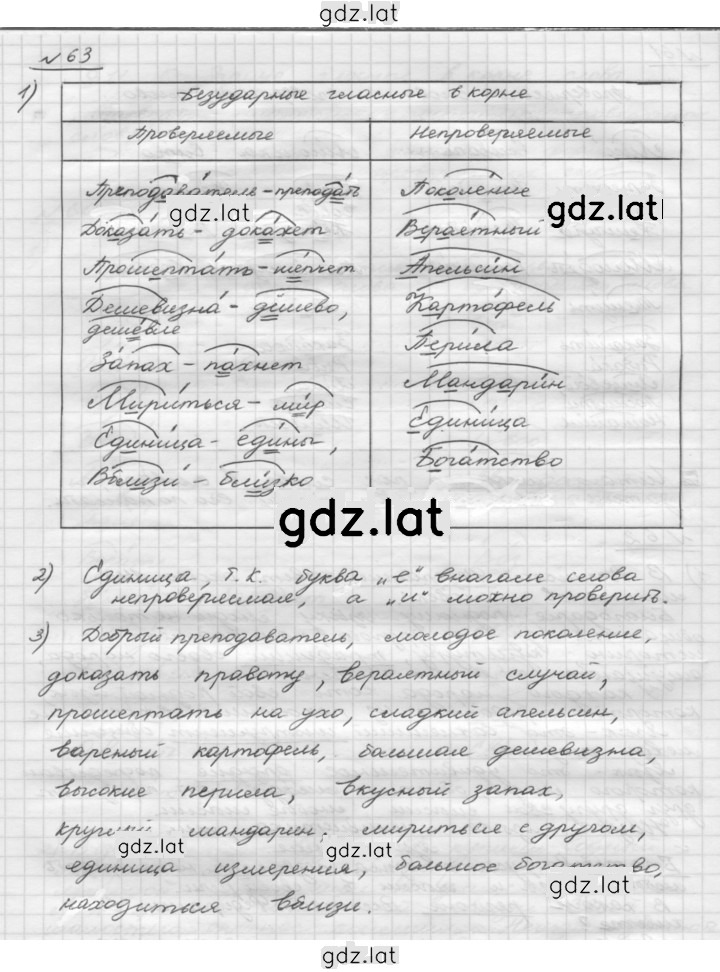 gdz.lat
№ 63
1)
Безударные гласные в корне
Проверяемые
Непроверяемые
Преподаватель - преподать
Доказать - докажет
Прошептать - шепчет
Дешевизна - дёшево,
дешевле
Запах - пахнет
Мириться - мир
Единица - едины,
Вблизи - близко
Поколение
Вераетный
Апельсин
Картофель
Перила
Мандарин
Единица
Богатство
gdz.lat
gdz.lat
gdz.lat
2) Единица, т.к. буква „е“ вначале слова
непроверяемая, а „и“ можно проверить.
3) Добрый преподаватель, молодое поколение,
доказать правоту, вераетный случай,
прошептать на ухо, сладкий апельсин,
вареный картофель, большая дешевизна,
высокие перила, вкусный запах,
мандарин, мириться с другом,
единица измерения, большое богатство,
находиться вблизи.
gdz.lat
gdz.lat
gdz.lat
gdz.lat